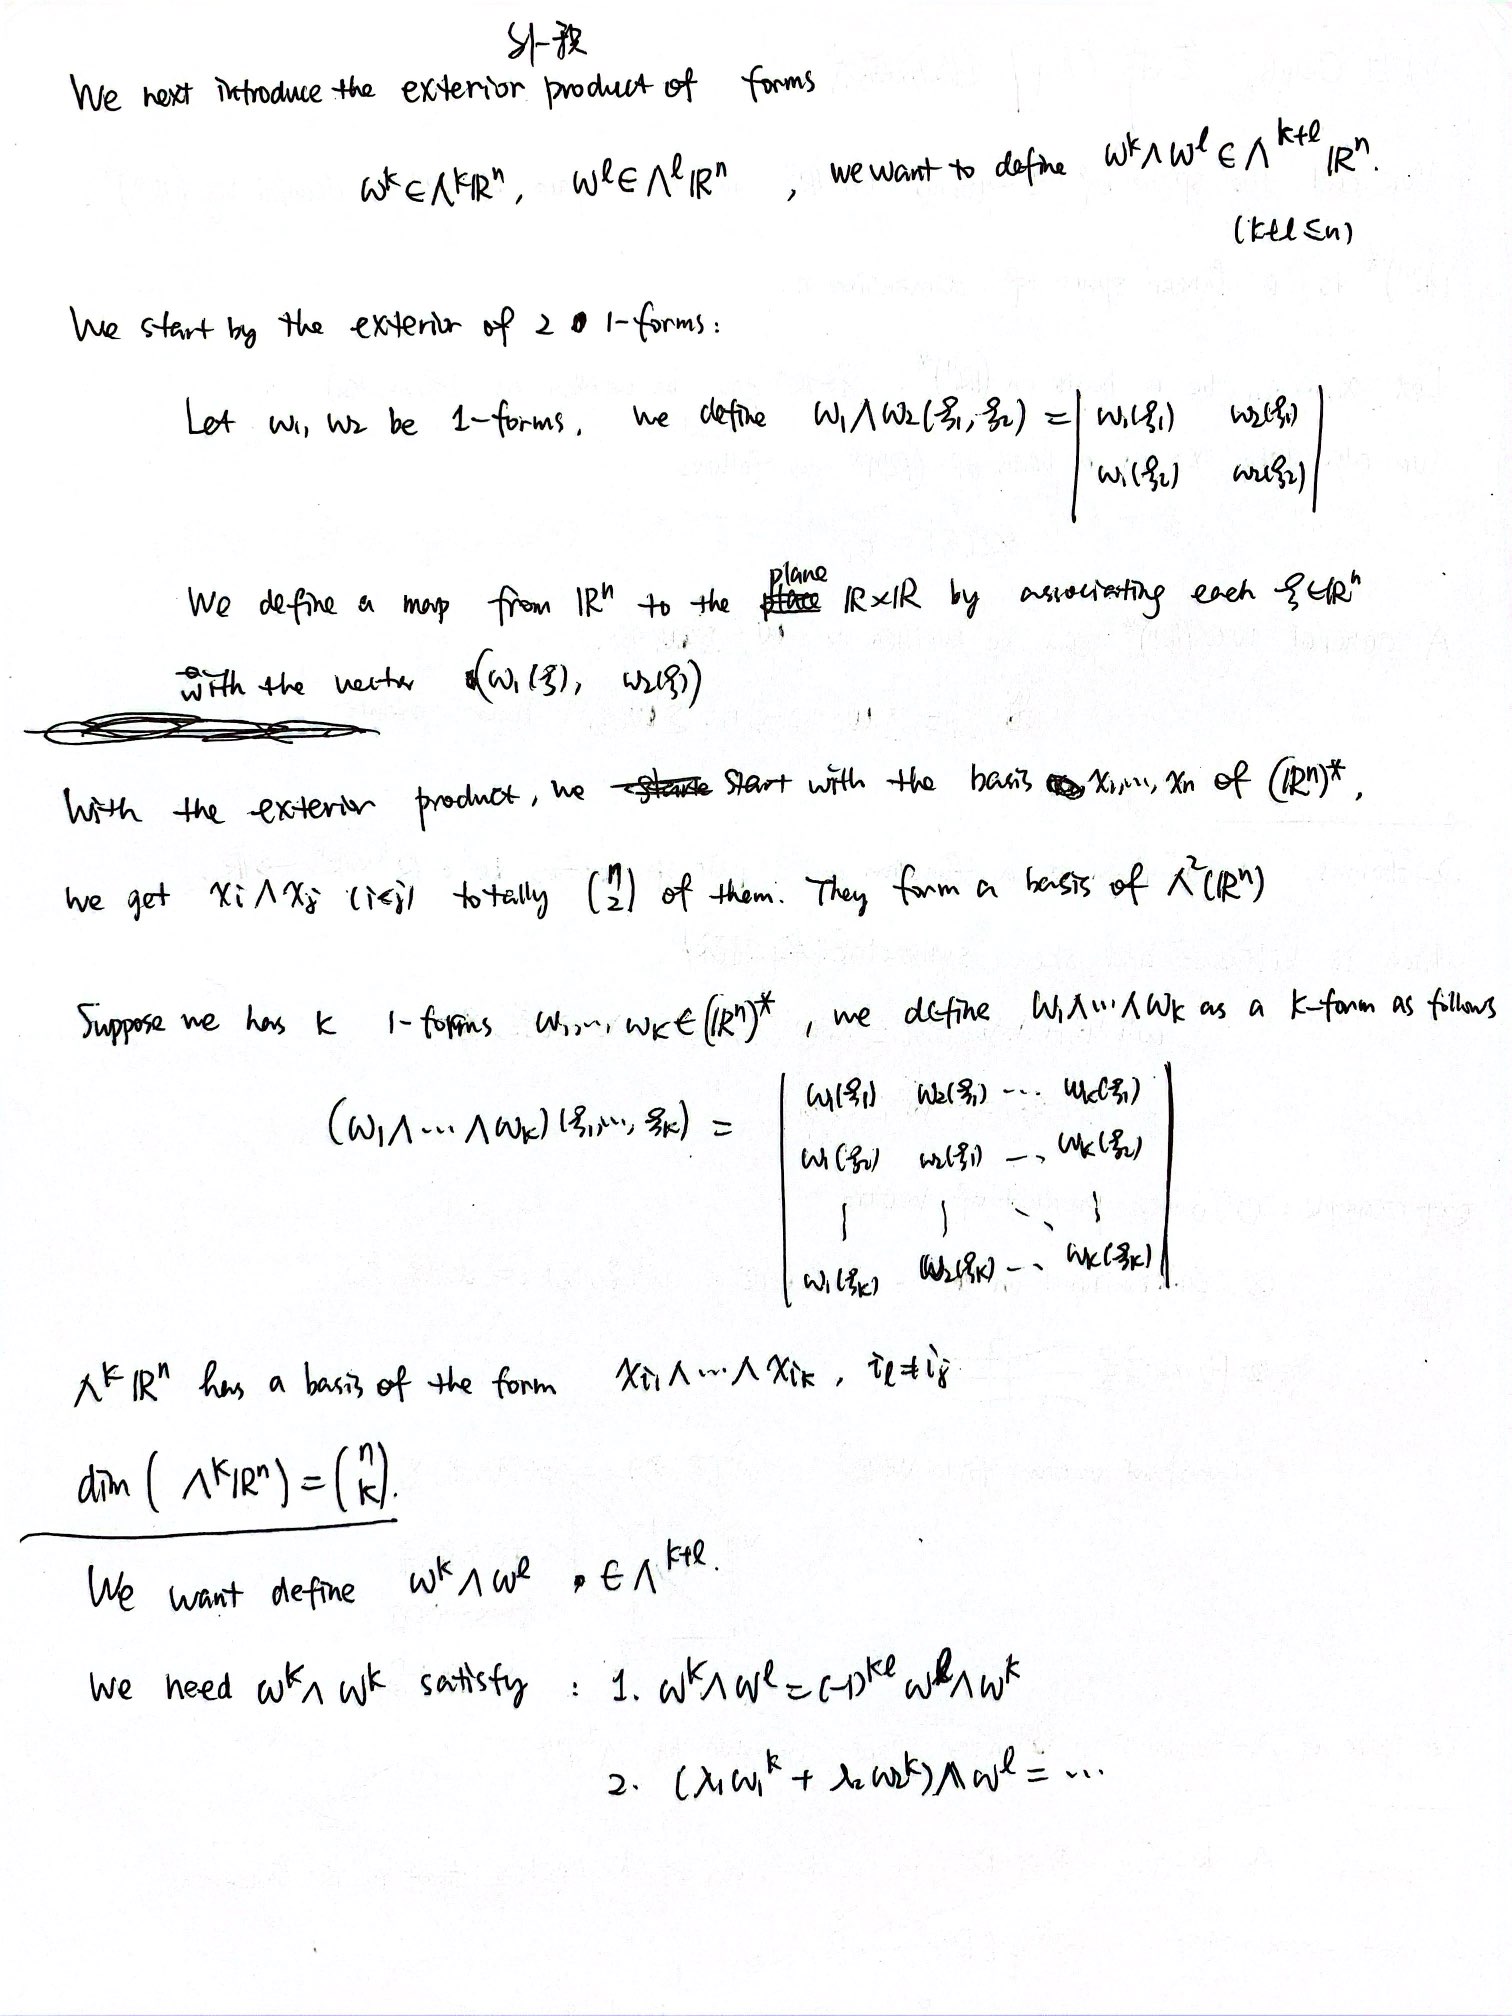 外积
We next introduce the exterior product of forms
ω^k ∈ Λ^k ℝ^n, ω^l ∈ Λ^l ℝ^n , we want to define ω^k ∧ ω^l ∈ Λ^{k+l} ℝ^n.
(k+l ≤ n)
We start by the exterior of 2 1-forms:
Let ω₁, ω₂ be 1-forms, we define ω₁ ∧ ω₂ (ξ₁, ξ₂) = | ω₁(ξ₁) ω₂(ξ₁) |
| ω₁(ξ₂) ω₂(ξ₂) |
plane
We define a map from ℝ^n to the ℝ×ℝ by associating each ξ ∈ ℝ^n
with the vector (ω₁(ξ), ω₂(ξ))
With the exterior product, we start with the basis x₁, ..., x_n of (ℝ^n)*,
we get x_i ∧ x_j (i<j) totally (n 2) of them. They form a basis of Λ²(ℝ^n)
Suppose we has k 1-forms ω₁, ..., ω_k ∈ (ℝ^n)* , we define ω₁ ∧ ... ∧ ω_k as a k-form as follows
(ω₁ ∧ ... ∧ ω_k) (ξ₁, ..., ξ_k) = | ω₁(ξ₁) ω₂(ξ₁) ... ω_k(ξ₁) |
| ω₁(ξ₂) ω₂(ξ₁) ... ω_k(ξ₂) |
| ⋮ ⋮ ⋱ ⋮ |
| ω₁(ξ_k) ω₂(ξ_k) ... ω_k(ξ_k) |
Λ^k ℝ^n has a basis of the form x_{i₁} ∧ ... ∧ x_{i_k} , i_l ≠ i_j
dim ( Λ^k ℝ^n ) = (n k).
We want define ω^k ∧ ω^l ∈ Λ^{k+l}.
We need ω^k ∧ ω^k satisfy : 1. ω^k ∧ ω^l = (-1)^{kl} ω^l ∧ ω^k
2. (λ₁ω₁^k + λ₂ω₂^k) ∧ ω^l = ...